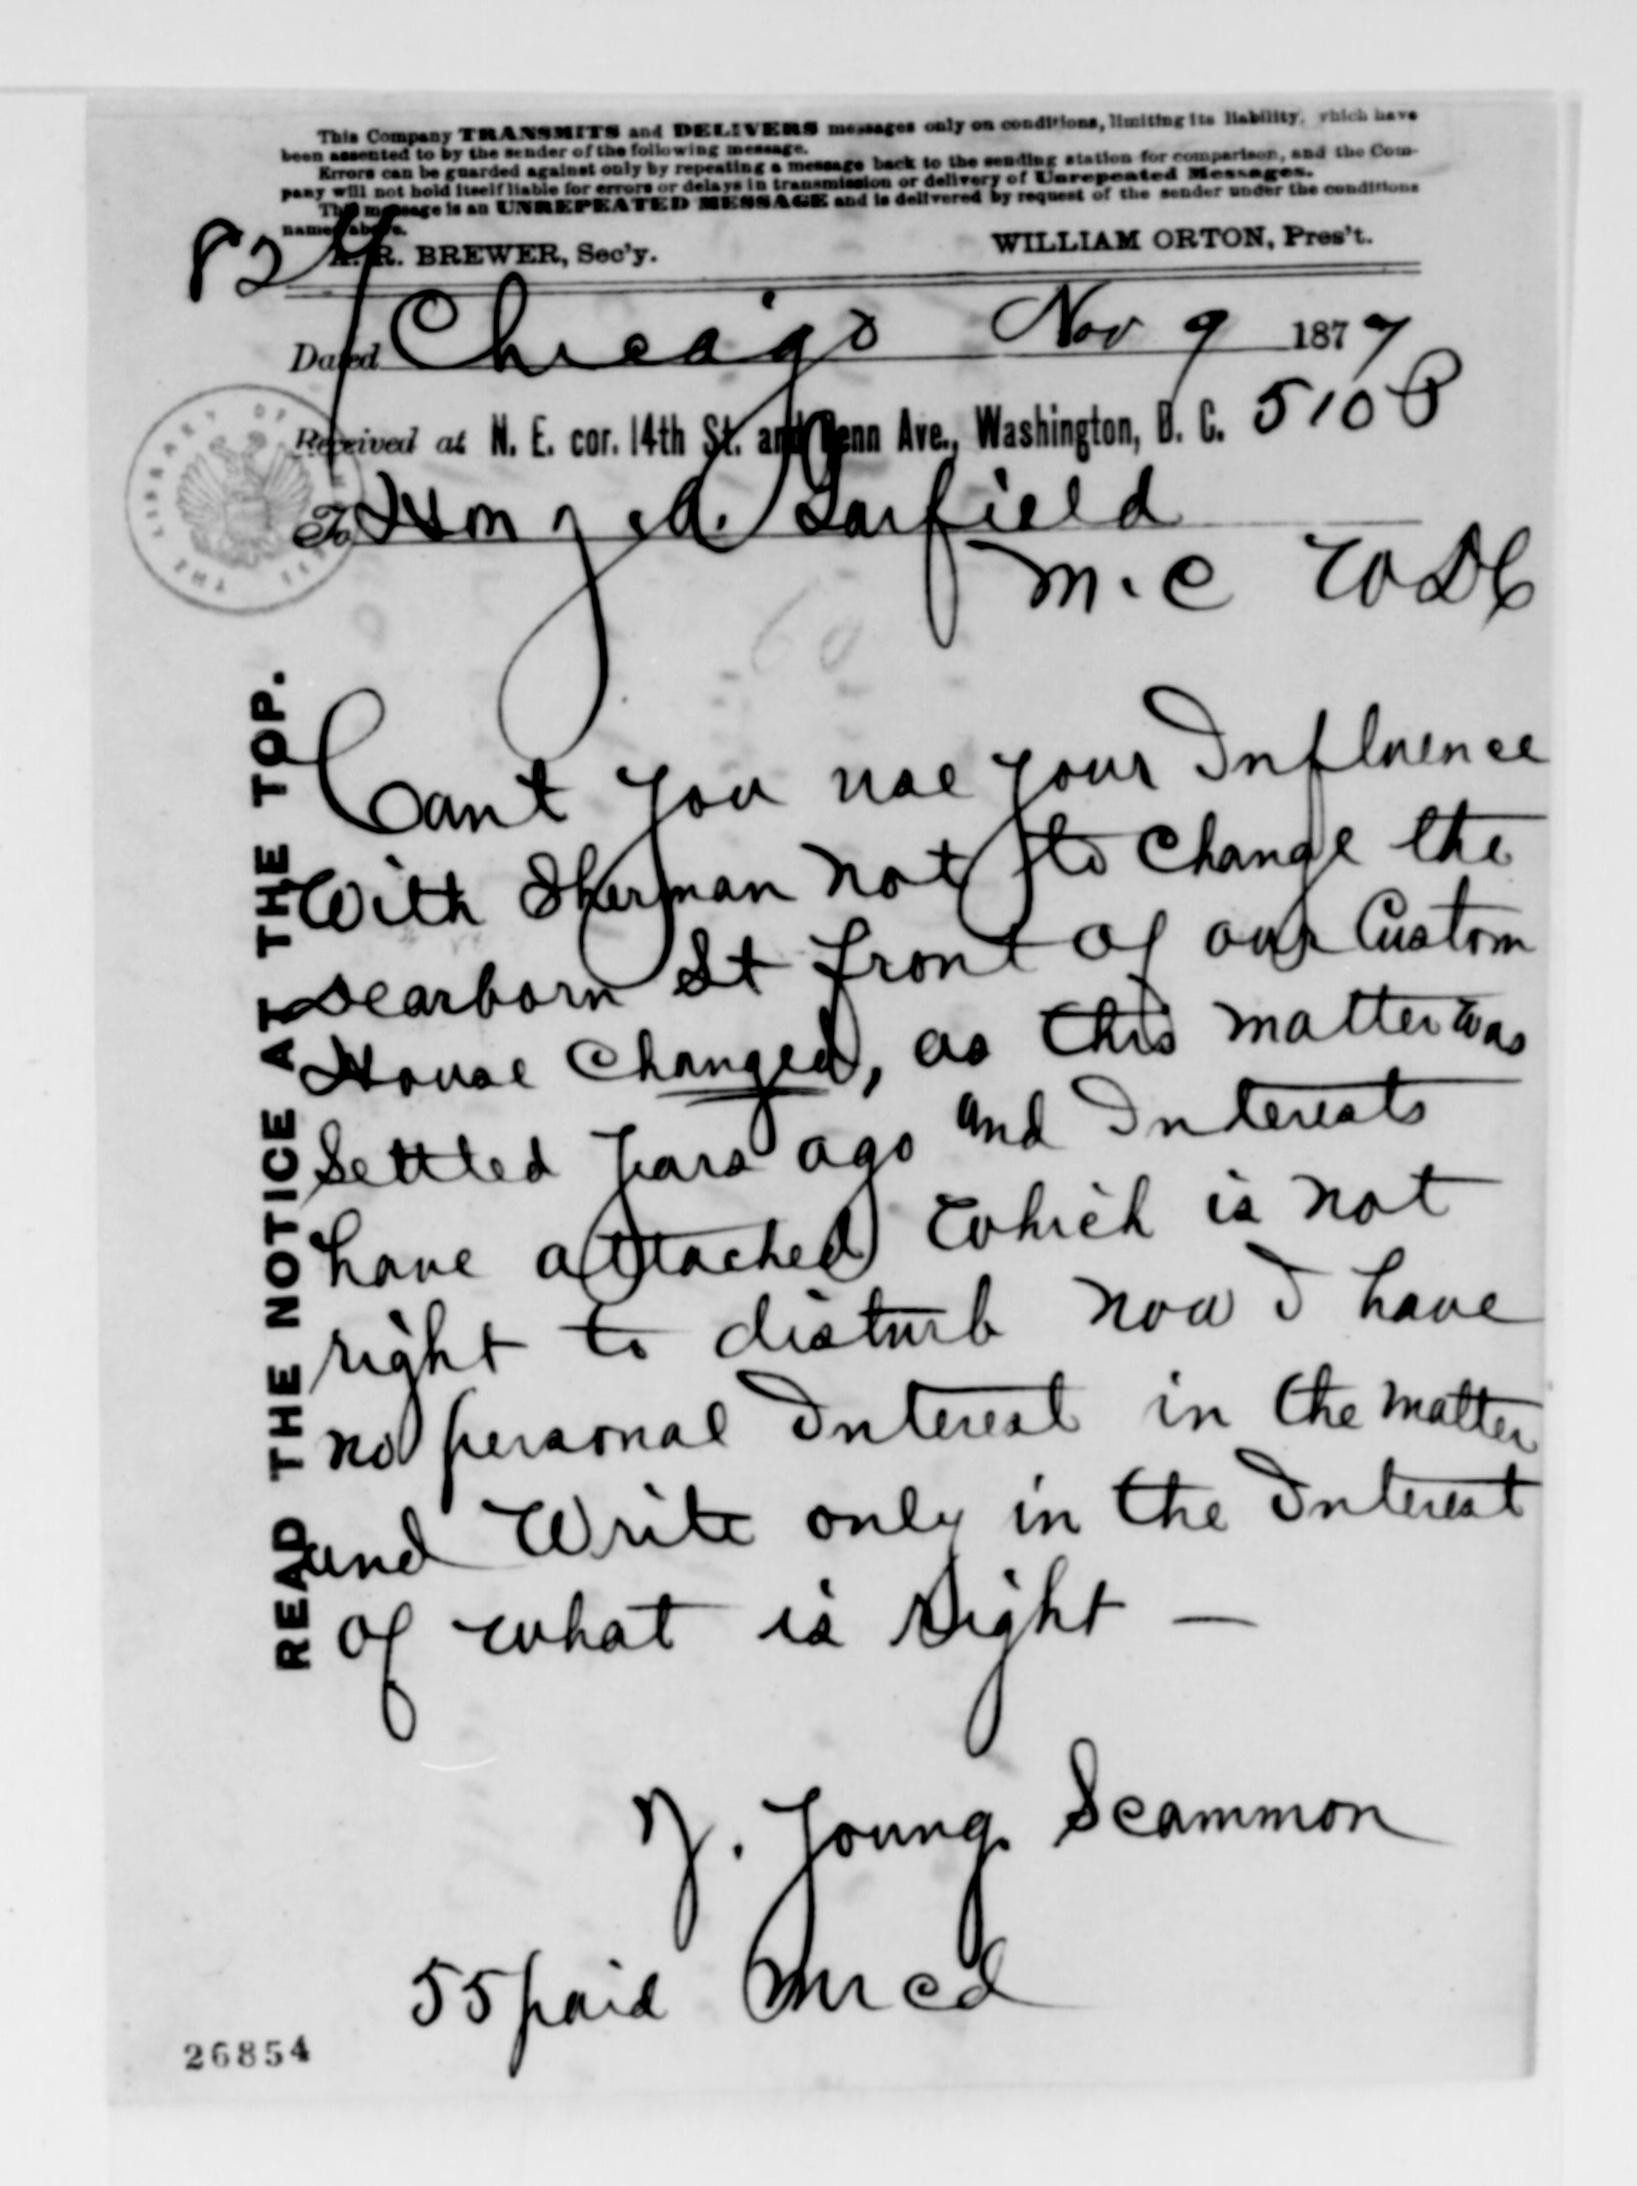 This Company TRANSMITS and DELIVERS messages only on conditions, limiting its liability, which have
been assented to by the sender of the following message.
Errors can be guarded against only by repeating a message back to the sending station for comparison, and the Com-
pany will not hold itself liable for errors or delays in transmission or delivery of Unrepeated Messages.
This message is an UNREPEATED MESSAGE and is delivered by request of the sender under the conditions
named above.
82
A. R. BREWER, Sec'y. WILLIAM ORTON, Pres't.
Dated Chicago Nov 9 1877
Received at N. E. cor. 14th St. and Penn Ave., Washington, D. C. 510 P
To Hon J. A. Garfield
M.C W DC
THE LIBRARY OF
READ THE NOTICE AT THE TOP.
Cant you use your Influence
With Sherman not to change the
Dearborn St front of our Custom
House Changed, as this matter was
Settled years ago and Interests
have attached which is not
right to disturb now I have
no personal Interest in the matter
and Write only in the Interest
of what is right —
J. Young Scammon
55 paid
26854